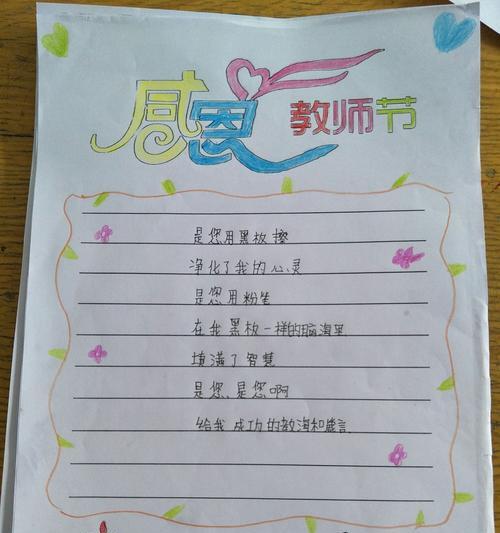 感恩 教师节
是您用黑板擦
净化了我的心灵
是您用粉笔
在我黑板一样的脑海里
填满了智慧
是您、是您啊
给我成功的教海和箴言